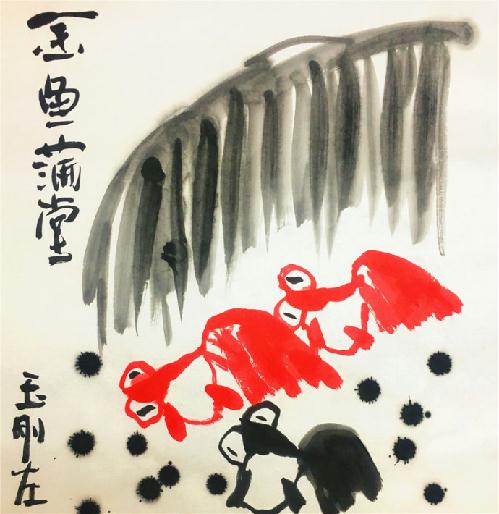 金鱼满堂
玉刚左